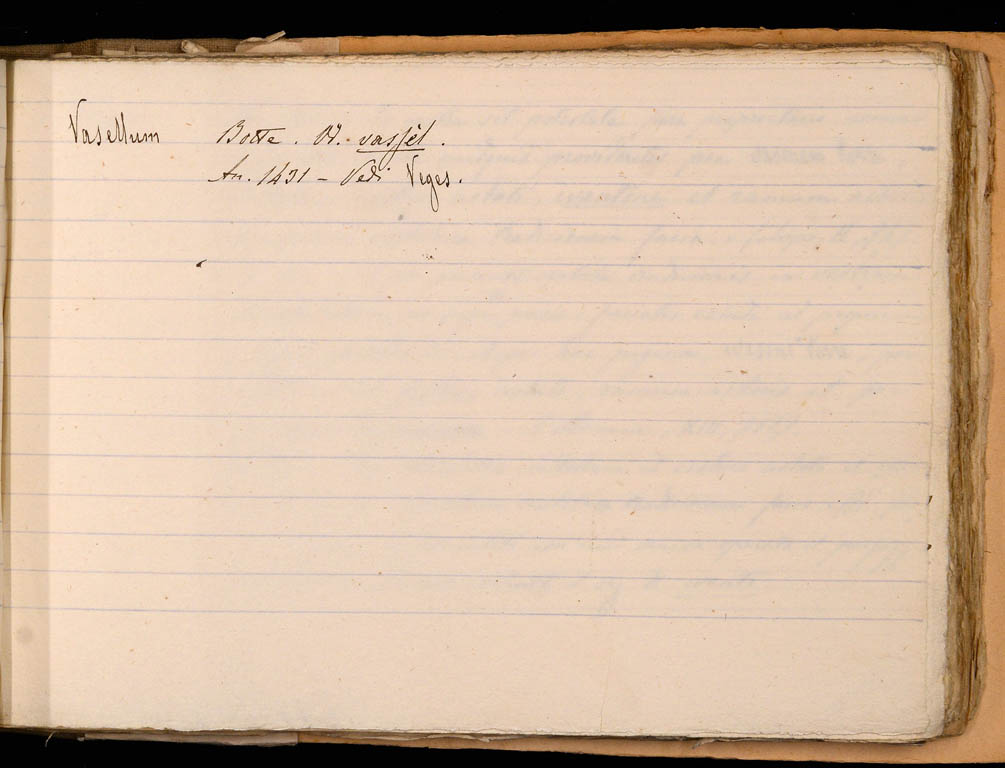 Vasellum Botte. Vl. vassèl.
An. 1431 - Vedi Veges.